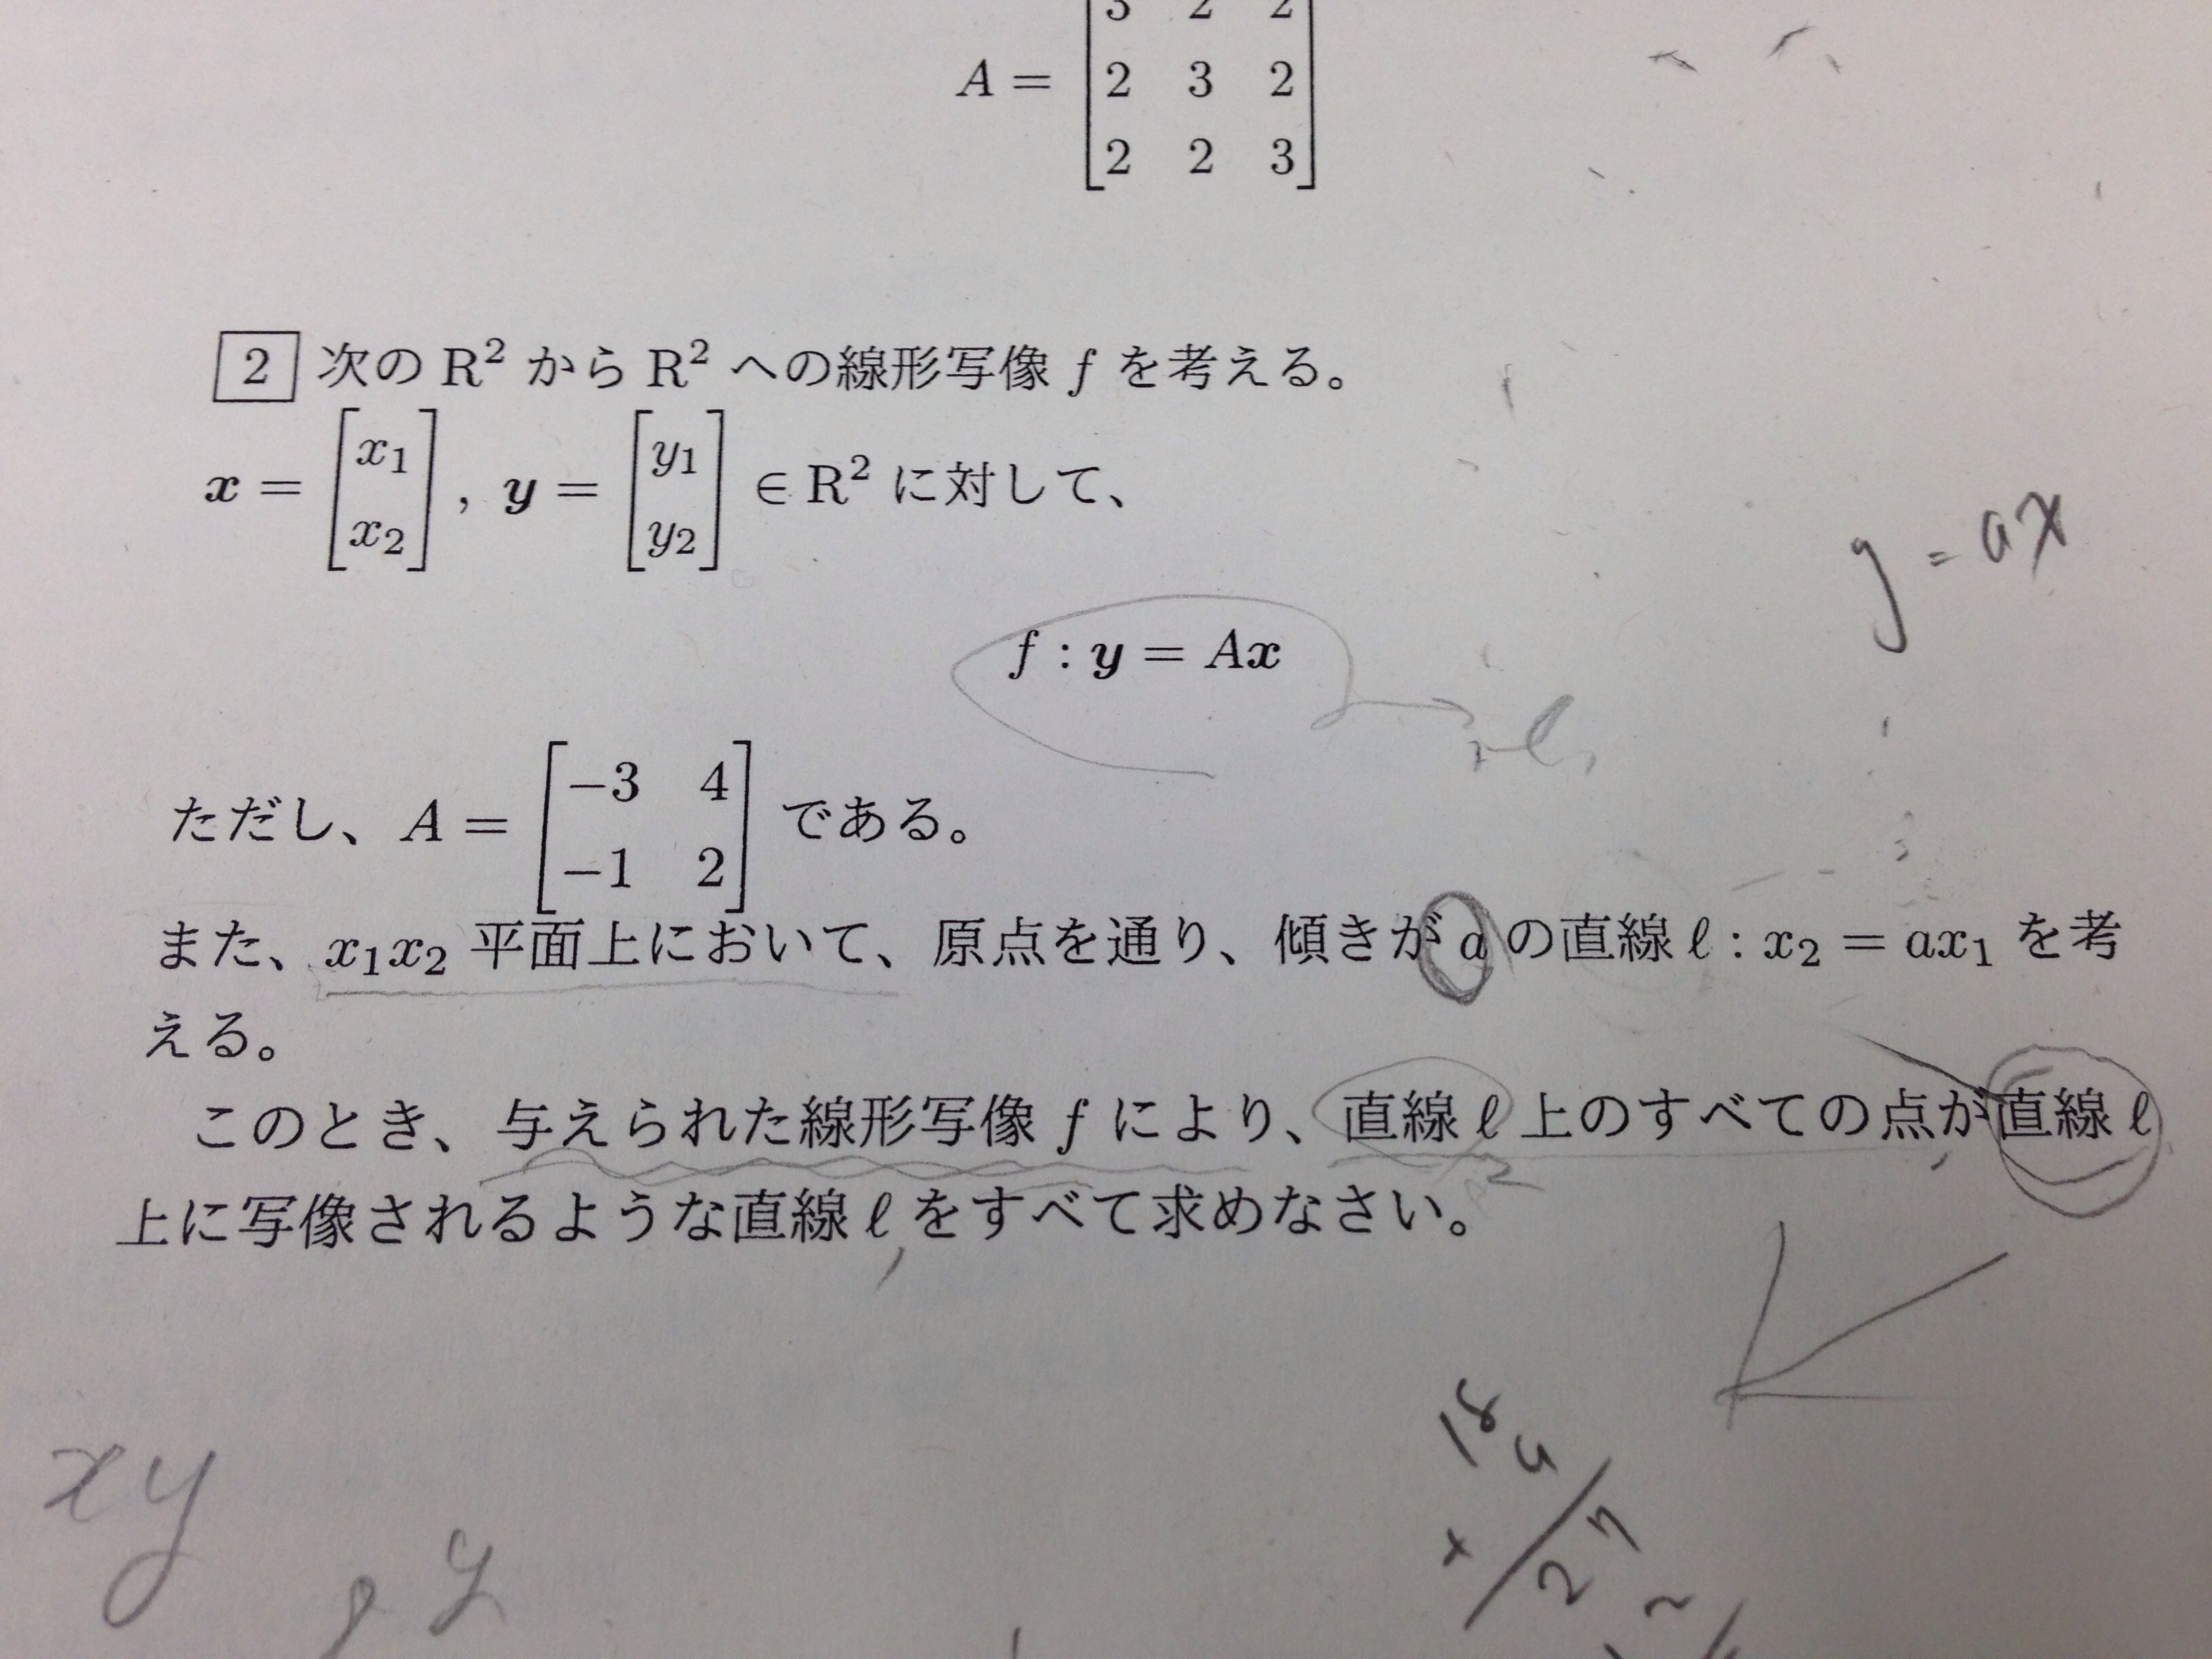 3 2 2
A = 2 3 2
2 2 3
2 次の R² から R² への線形写像 f を考える。
x = [x₁ x₂] , y = [y₁ y₂] ∈ R² に対して、
y = ax
f : y = Ax
ℓ
ただし、A = [−3 4 −1 2] である。
また、x₁x₂ 平面上において、原点を通り、傾きが a の直線 ℓ : x₂ = ax₁ を考
える。
このとき、与えられた線形写像 f により、直線 ℓ 上のすべての点が直線 ℓ
上に写像されるような直線 ℓ をすべて求めなさい。
xy
y